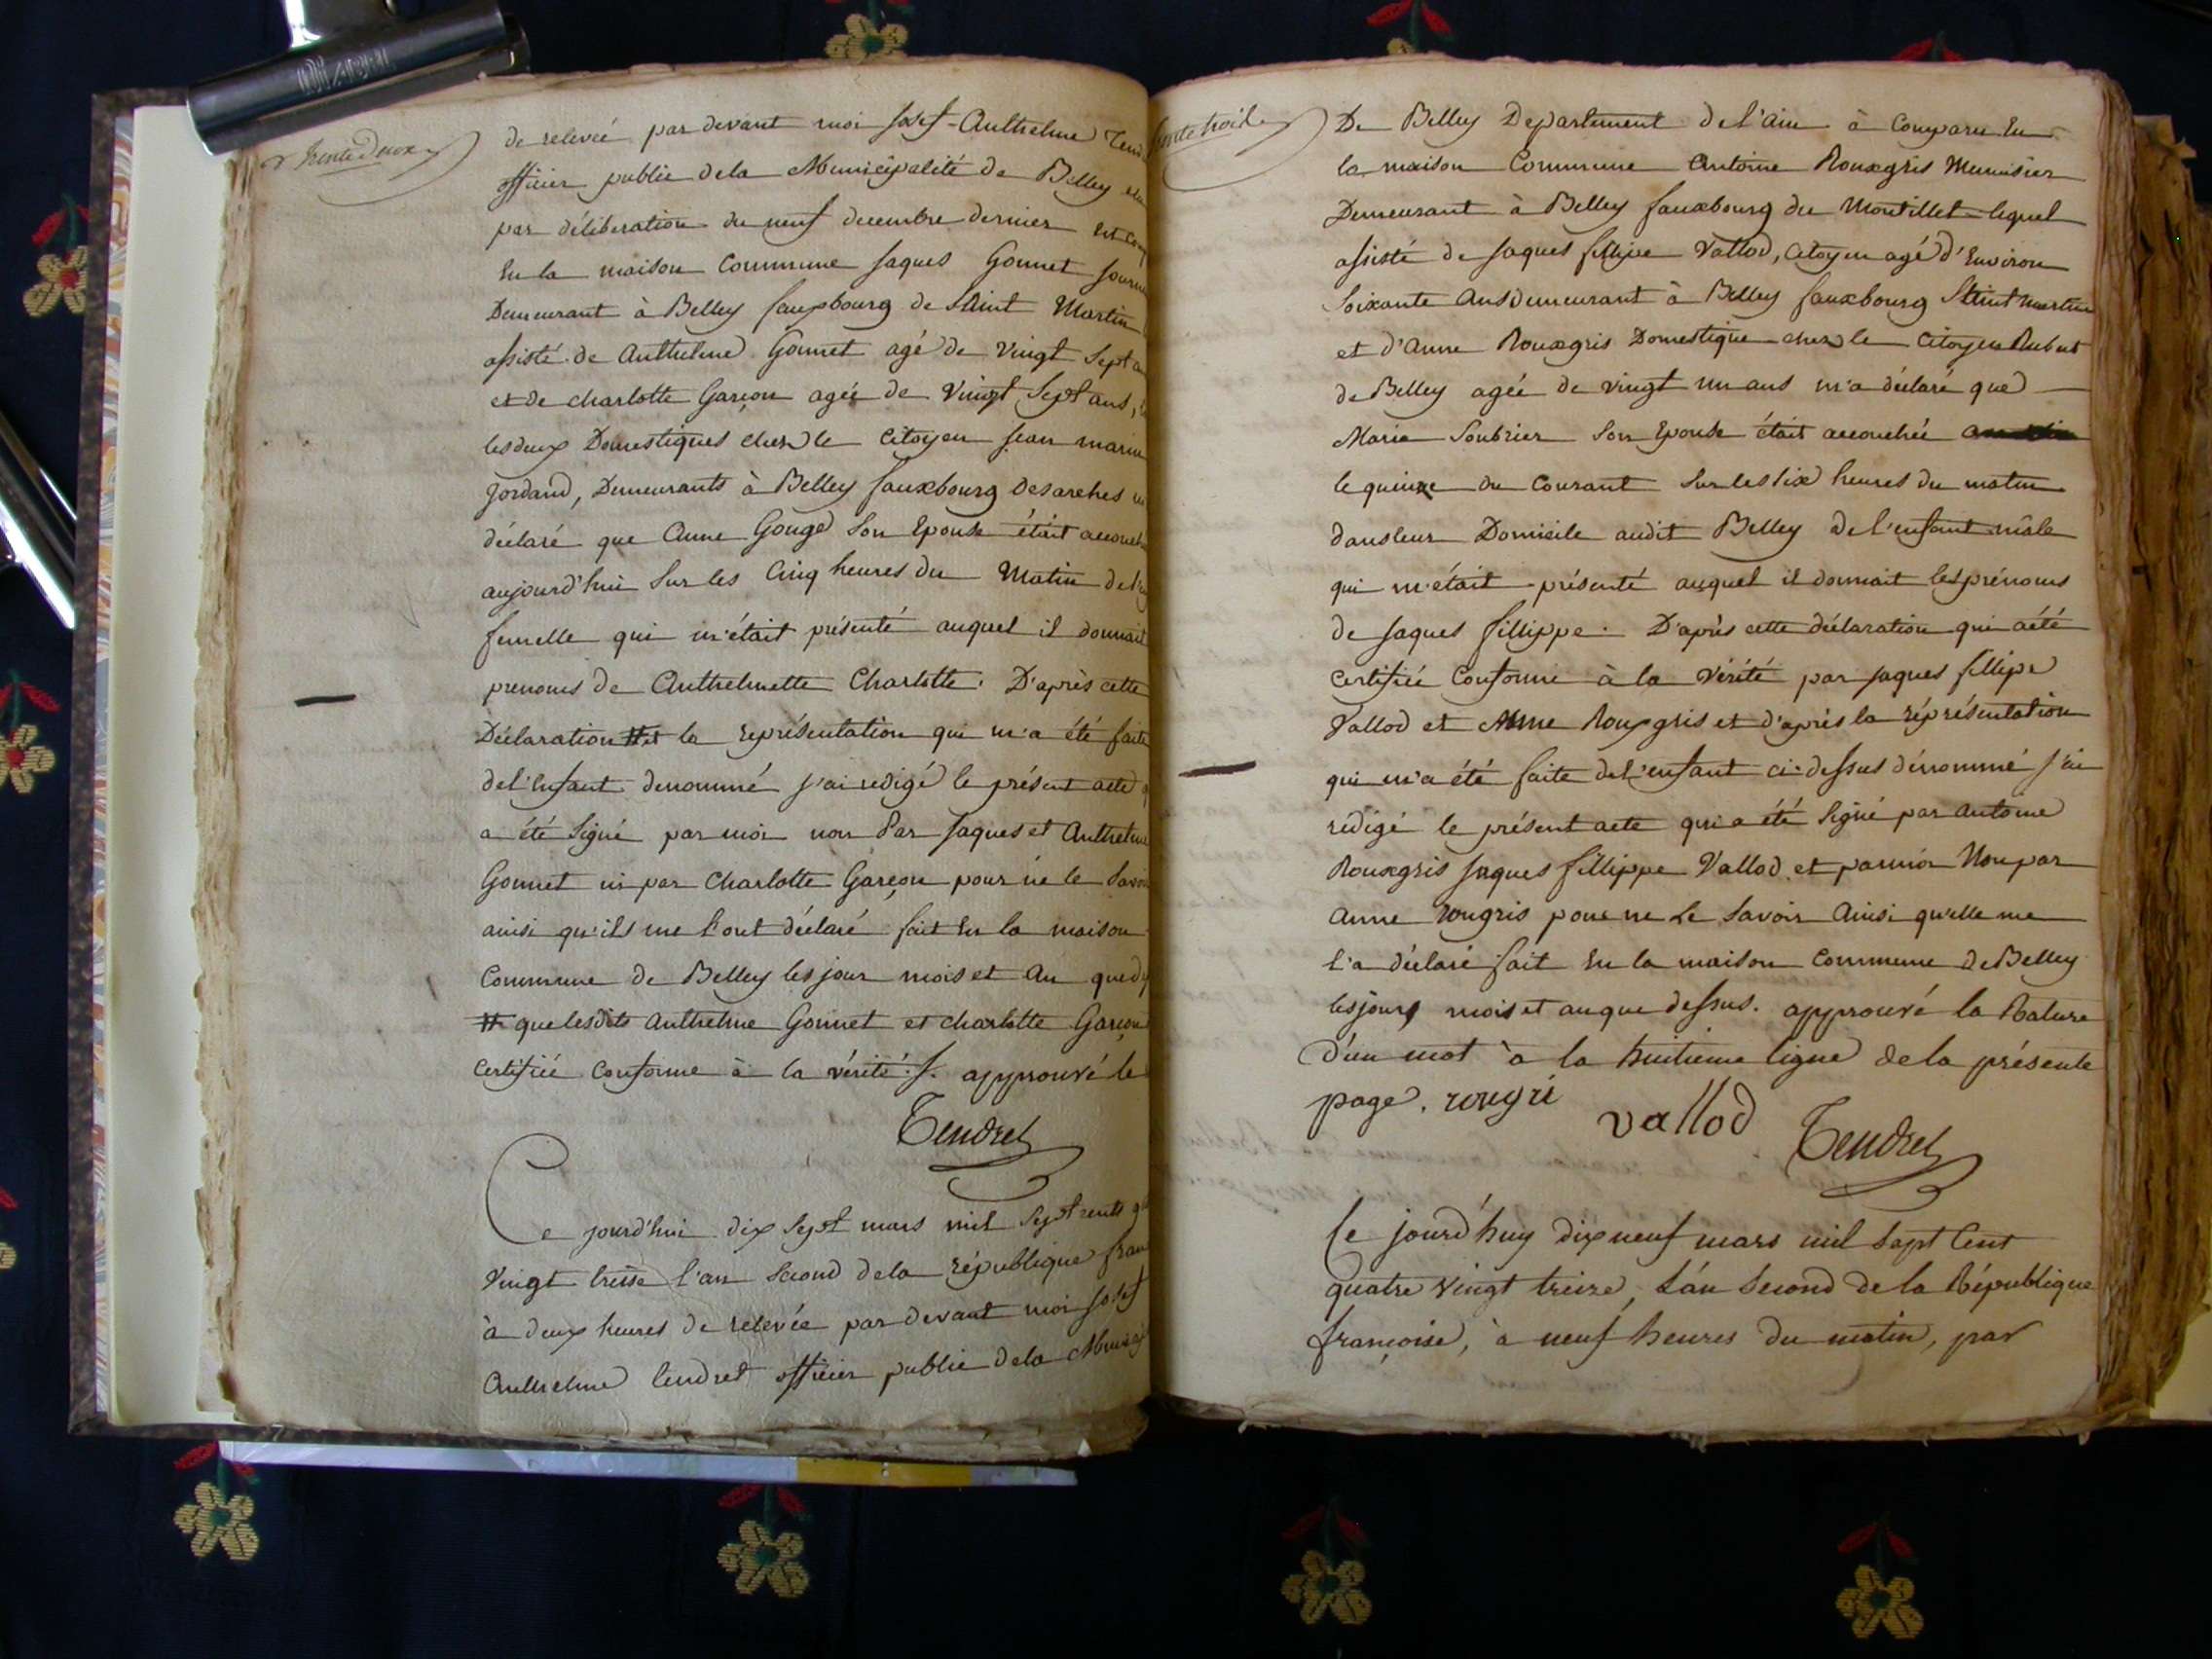 trente Deux
de relevée par devant moi Josef-Anthelme Tend
officier public dela Municipalité de Belley élu
par déliberation du neuf decembre dernier Est Comp
En la maison Commune Jaques Gonnet Journ
Demeurant à Belley fauxbourg de Saint Martin
assisté de Anthelme Gonnet agé de Vingt Sept an
et de charlotte Garçon agée de Vingt Sept ans,
lesdeux Domestiques chez le Citoyen Jean marie
Jordand, Demeurants à Belley fauxbourg desarches m
déclaré que Anne Gouge Son Epouse était accouch
aujourd'hui Sur les Cinq heures du Matin de l'
femelle qui m'était présenté auquel il donnait
prenoms de Anthelmette Charlotte. D'après cette
Déclaration # et la représentation qui m'a été faite
del'Enfant denommé j'ai redigé le présent acte q
a été Signé par moi non Par Jaques et Anthelme
Gonnet ni par Charlotte Garçon pour ne le Savoir
ainsi qu'ils me l'ont déclaré fait En la maison
Commune de Belley les jour mois et An que d
# que lesdits Anthelme Gonnet et charlotte Garçon
Certifiée Conforme à la vérité. approuvé le
Tendret
Ce jourd'hui dix Sept mars mil Sept cents q
Vingt treise l'an Second dela république fran
à deux heures de relevée par devant moi Josef
Anthelme tendret officier public dela Munici
trente trois
De Belley Département de l'Ain à Comparu En
la maison Commune Antoine Rouxgris Meunisier
Demeurant à Belley fauxbourg du Montillet lequel
assisté de Jaques fillipe Vallod, Citoyen agé d'Environ
Soixante Ans demeurant à Belley fauxbourg Saint martin
et d'Anne Rouxgris Domestique chez le Citoyen Rubat
de Belley agée de vingt un ans m'a déclaré que
Marie Soubrier Son Epouse était accouchée
le quinze du Courant Sur les six heures du matin
dans leur Domicile audit Belley de l'enfant mâle
qui m'était présenté auquel il donnait les prénoms
de Jaques fillippe. D'après cette déclaration qui a été
Certifiée Conforme à la Vérité par jaques fillipe
Vallod et Anne Rouxgris et d'après la réprésentation
qui m'a été faite del'enfant ci-dessus dénommé j'ai
rédigé le présent acte qui a été Signé par antoine
Rouxgris Jaques fillippe Vallod et par moi Non par
Anne rougris pour ne Le Savoir Ainsi qu'elle me
l'a déclaré fait En la maison Commune de Belley
les jours mois et an que dessus. approuvé la Rature
d'un mot à la huitieme ligne de la présente
page. rougri
vallod
Tendret
Ce jourd'huy dix neuf mars mil Sept Cent
quatre Vingt treize, L'an Second de la République
françoise, à neuf heures du matin, par